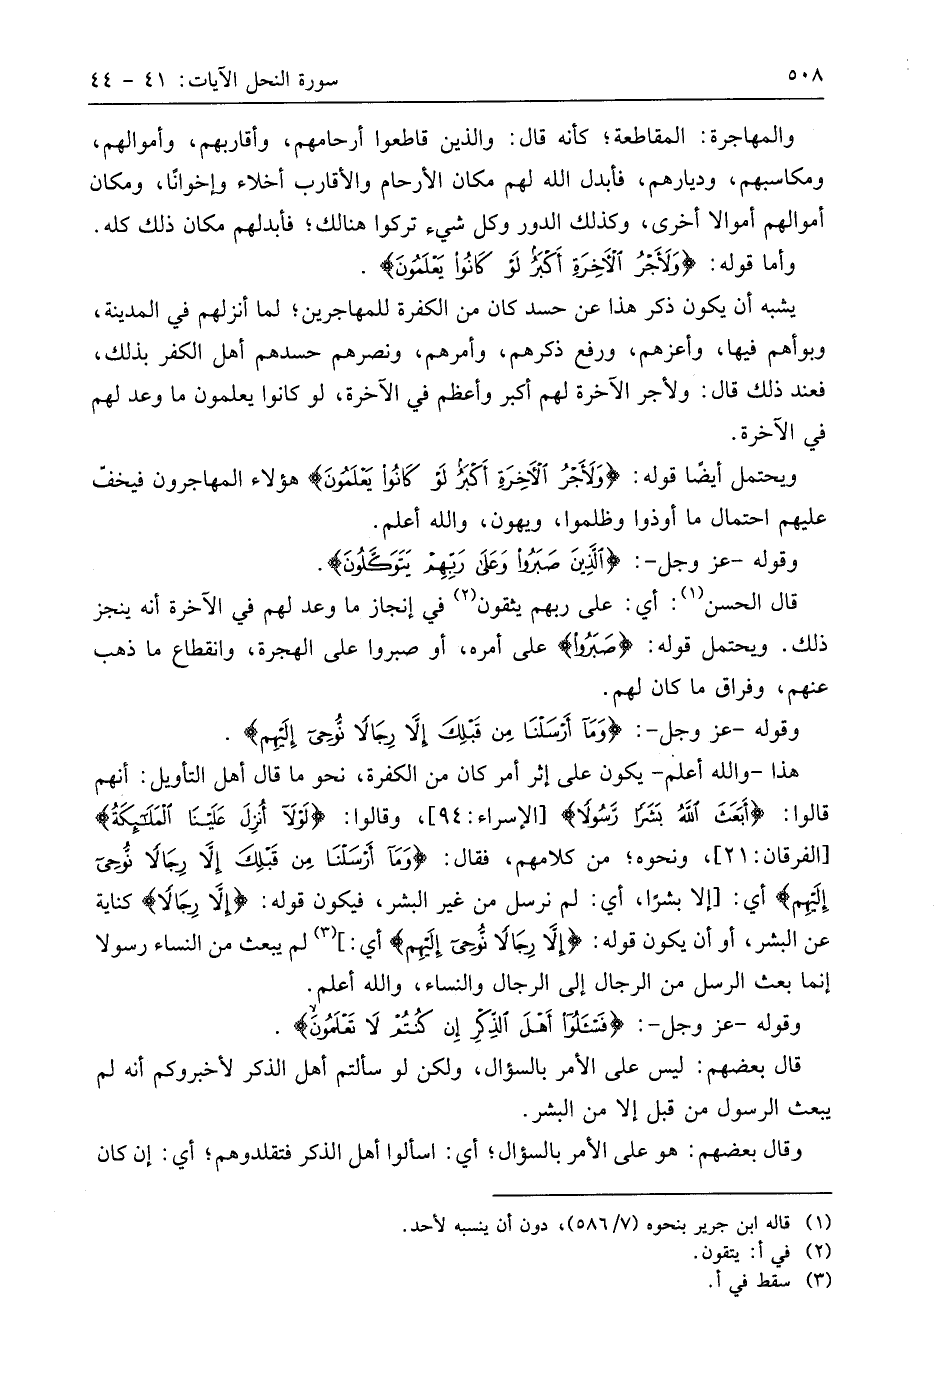 ٥٠٨
سورة النحل الآيات: ٤١ - ٤٤
والمهاجرة: المقاطعة؛ كأنه قال: والذين قاطعوا أرحامهم، وأقاربهم، وأموالهم،
ومكاسبهم، وديارهم، فأبدل الله لهم مكان الأرحام والأقارب أخلاء وإخوانًا، ومكان
أموالهم أموالا أخرى، وكذلك الدور وكل شيء تركوا هنالك؛ فأبدلهم مكان ذلك كله.
وأما قوله: ﴿وَلَأَجْرُ ٱلْأَخِرَةِ أَكْبَرُ لَوْ كَانُوا۟ يَعْلَمُونَ﴾ .
يشبه أن يكون ذكر هذا عن حسد كان من الكفرة للمهاجرين؛ لما أنزلهم في المدينة،
وبوأهم فيها، وأعزهم، ورفع ذكرهم، وأمرهم، ونصرهم حسدهم أهل الكفر بذلك،
فعند ذلك قال: ولأجر الآخرة لهم أكبر وأعظم في الآخرة، لو كانوا يعلمون ما وعد لهم
في الآخرة.
ويحتمل أيضًا قوله: ﴿وَلَأَجْرُ ٱلْأَخِرَةِ أَكْبَرُ لَوْ كَانُوا۟ يَعْلَمُونَ﴾ هؤلاء المهاجرون فيخفّ
عليهم احتمال ما أوذوا وظلموا، ويهون، والله أعلم.
وقوله -عز وجل-: ﴿ٱلَّذِينَ صَبَرُوا۟ وَعَلَىٰ رَبِّهِمْ يَتَوَكَّلُونَ﴾ .
قال الحسن(١): أي: على ربهم يثقون(٢) في إنجاز ما وعد لهم في الآخرة أنه ينجز
ذلك. ويحتمل قوله: ﴿صَبَرُوا۟﴾ على أمره، أو صبروا على الهجرة، وانقطاع ما ذهب
عنهم، وفراق ما كان لهم.
وقوله -عز وجل-: ﴿وَمَآ أَرْسَلْنَا مِن قَبْلِكَ إِلَّا رِجَالًا نُّوحِىٓ إِلَيْهِم﴾ .
هذا -والله أعلم- يكون على إثر أمر كان من الكفرة، نحو ما قال أهل التأويل: أنهم
قالوا: ﴿أَبَعَثَ ٱللَّهُ بَشَرًا رَّسُولًا﴾ [الإسراء: ٩٤]، وقالوا: ﴿لَوْلَآ أُنزِلَ عَلَيْنَا ٱلْمَلَـٰٓئِكَةُ﴾
[الفرقان: ٢١]، ونحوه؛ من كلامهم، فقال: ﴿وَمَآ أَرْسَلْنَا مِن قَبْلِكَ إِلَّا رِجَالًا نُّوحِىٓ
إِلَيْهِم﴾ أي: [إلا بشرًا، أي: لم نرسل من غير البشر، فيكون قوله: ﴿إِلَّا رِجَالًا﴾ كناية
عن البشر، أو أن يكون قوله: ﴿إِلَّا رِجَالًا نُّوحِىٓ إِلَيْهِم﴾ أي:](٣) لم يبعث من النساء رسولا
إنما بعث الرسل من الرجال إلى الرجال والنساء، والله أعلم.
وقوله -عز وجل-: ﴿فَسْـَٔلُوٓا۟ أَهْلَ ٱلذِّكْرِ إِن كُنتُمْ لَا تَعْلَمُونَ﴾ .
قال بعضهم: ليس على الأمر بالسؤال، ولكن لو سألتم أهل الذكر لأخبروكم أنه لم
يبعث الرسول من قبل إلا من البشر.
وقال بعضهم: هو على الأمر بالسؤال؛ أي: اسألوا أهل الذكر فتقلدوهم؛ أي: إن كان
(١) قاله ابن جرير بنحوه (٥٨٦/٧)، دون أن ينسبه لأحد.
(٢) في أ: يتقون.
(٣) سقط في أ.